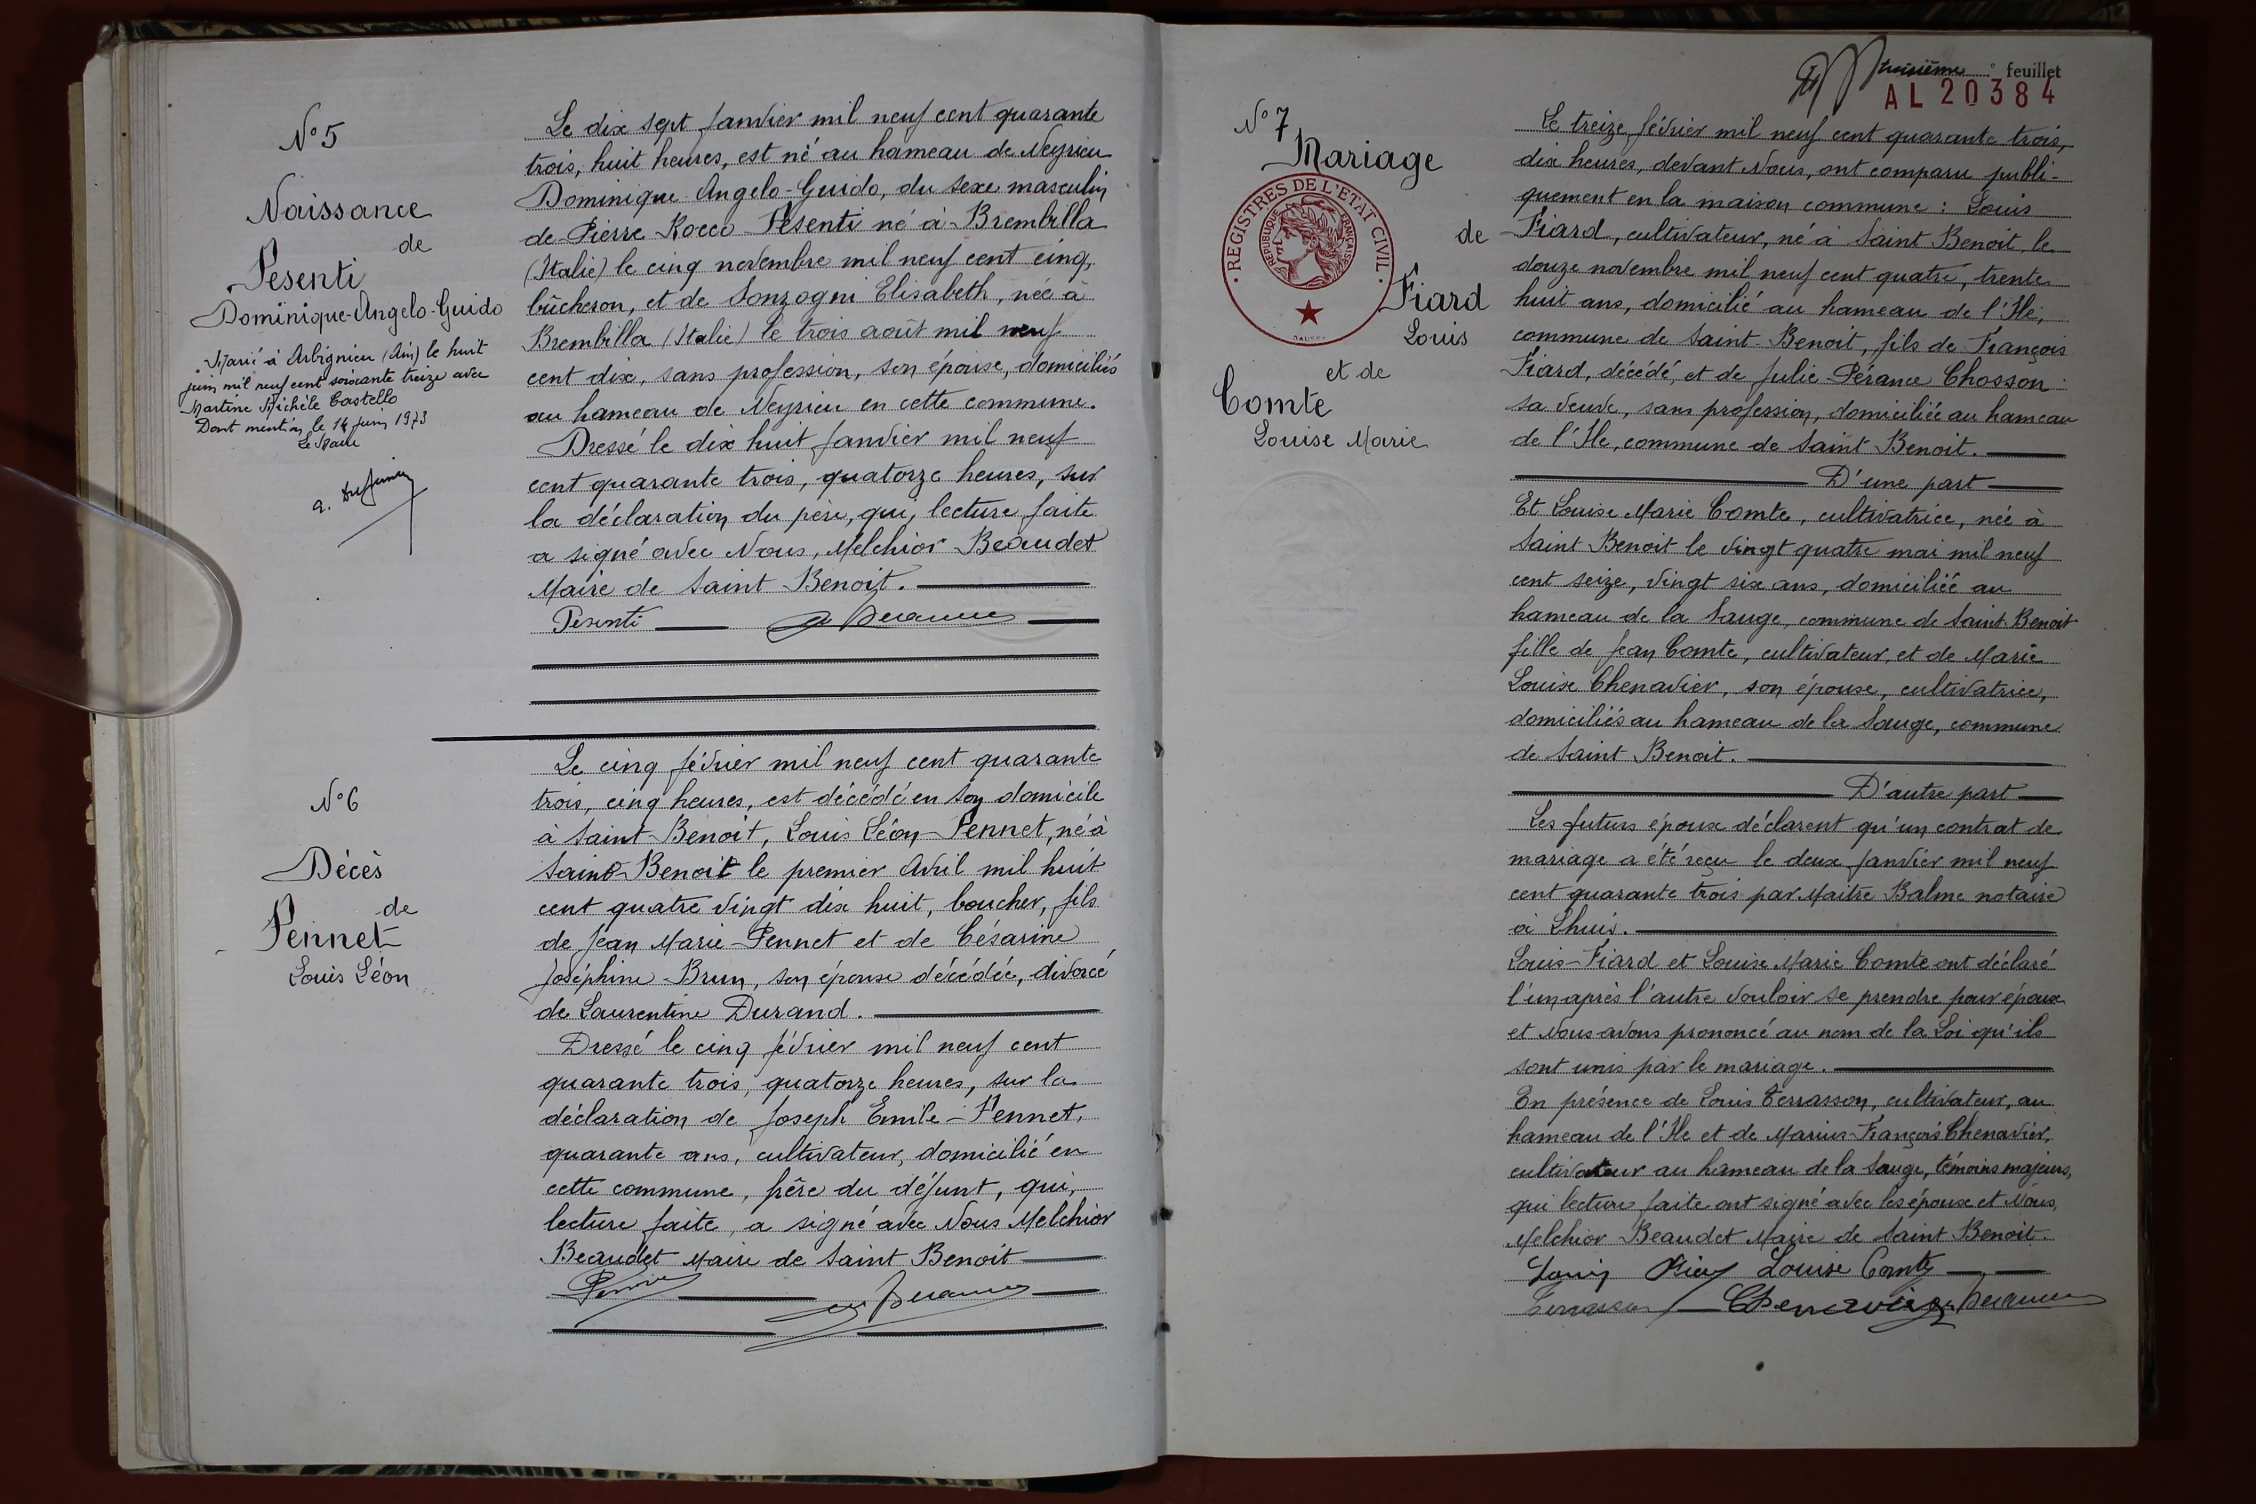 N° 5
Naissance
de
Pesenti
Dominique-Angelo-Guido
Marié à Arbignieu (Ain) le huit
juin mil neuf cent soixante treize avec
Martine Michèle Castello
Dont mention, le 14 juin 1973
Le Maire
Le dix sept janvier mil neuf cent quarante
trois, huit heures, est né au hameau de Neyrieu
Dominique Angelo-Guido, du sexe masculin
de Pierre Rocco Pesenti né à Brembilla
(Italie) le cinq novembre mil neuf cent cinq,
bûcheron, et de Sonzogni Elisabeth, née à
Brembilla (Italie) le trois août mil neuf
cent dix, sans profession, son épouse, domiciliés
au hameau de Neyrieu en cette commune.
Dressé le dix huit janvier mil neuf
cent quarante trois, quatorze heures, sur
la déclaration du père, qui, lecture faite
a signé avec Nous, Melchior Beaudet
Maire de Saint Benoit.
Pesenti
N° 6
Décès
de
Pennet
Louis Léon
Le cinq février mil neuf cent quarante
trois, cinq heures, est décédé en son domicile
à Saint-Benoit, Louis Léon Pennet, né à
Saint-Benoit le premier Avril mil huit
cent quatre vingt dix huit, boucher, fils
de Jean Marie Pennet et de Césarine
Joséphine Brun, son épouse décédée, divorcé
de Laurentine Durand.
Dressé le cinq février mil neuf cent
quarante trois, quatorze heures, sur la
déclaration de Joseph Emile Pennet,
quarante ans, cultivateur, domicilié en
cette commune, frère du défunt, qui,
lecture faite, a signé avec Nous Melchior
Beaudet Maire de Saint Benoit
troisième feuillet
AL 20384
N° 7
Mariage
REGISTRES DE L'ETAT CIVIL
REPUBLIQUE FRANÇAISE
de
Fiard
Louis
et de
Comte
Louise Marie
Le treize février mil neuf cent quarante trois,
dix heures, devant Nous, ont comparu publi-
quement en la maison commune : Louis
Fiard, cultivateur, né à Saint Benoit le
douze novembre mil neuf cent quatre, trente
huit ans, domicilié au hameau de l'Ile,
commune de Saint-Benoit, fils de François
Fiard, décédé, et de Julie Pérance Chosson
sa veuve, sans profession, domiciliée au hameau
de l'Ile, commune de Saint Benoit.
D'une part
Et Louise Marie Comte, cultivatrice, née à
Saint Benoit le vingt quatre mai mil neuf
cent seize, vingt six ans, domiciliée au
hameau de la Sauge, commune de Saint-Benoit
fille de Jean Comte, cultivateur, et de Marie
Louise Chenavier, son épouse, cultivatrice,
domiciliés au hameau de la Sauge, commune
de Saint Benoit.
D'autre part
Les futurs époux déclarent qu'un contrat de
mariage a été reçu le deux janvier mil neuf
cent quarante trois par Maitre Balme notaire
à Lhuis.
Louis Fiard et Louise Marie Comte ont déclaré
l'un après l'autre vouloir se prendre pour époux
et Nous avons prononcé au nom de la Loi qu'ils
sont unis par le mariage.
En présence de Louis Terrasson, cultivateur, au
hameau de l'Ile et de Marius-François Chenavier,
cultivateur au hameau de la Sauge, témoins majeurs,
qui lecture faite ont signé avec les époux et Nous,
Melchior Beaudet Maire de Saint Benoit.
Louise Comte
Terrasson Chenavier